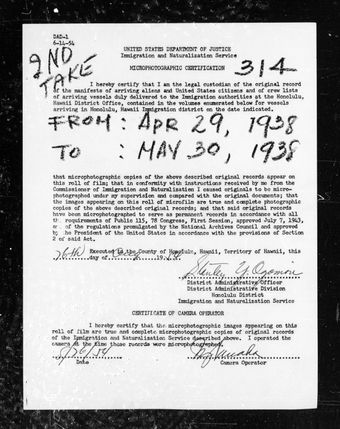 DAD-1
6-14-54
2ND
TAKE
UNITED STATES DEPARTMENT OF JUSTICE
Immigration and Naturalization Service
MICROPHOTOGRAPHIC CERTIFICATION
314
I hereby certify that I am the legal custodian of the original record
of the manifests of arriving aliens and United States citizens and of crew lists
of arriving vessels duly delivered to the Immigration authorities at the Honolulu,
Hawaii District Office, contained in the volumes enumerated below for vessels
arriving in Honolulu, Hawaii Immigration district on the date indicated.
FROM: APR 29, 1938
TO : MAY 30, 1938
that microphotographic copies of the above described original records appear on
this roll of film; that in conformity with instructions received by me from the
Commissioner of Immigration and Naturalization I caused originals to be micro-
photographed under my supervision and compared with the original documents; that
the images appearing on this roll of microfilm are true and complete photographic
copies of the above described original records; and that said original records
have been microphotographed to serve as permanent records in accordance with all
the requirements of Public 115, 78 Congress, First Session, approved July 7, 1943,
of the regulations promulgated by the National Archives Council and approved
by the President of the United States in accordance with the provisions of Section
2 of said Act.
Executed in the County of Honolulu, Hawaii, Territory of Hawaii, this
26th day of 19
Stanley Y.
District Administrative Officer
District Administrative Division
Honolulu District
Immigration and Naturalization Service
CERTIFICATE OF CAMERA OPERATOR
I hereby certify that the microphotographic images appearing on this
roll of film are true and complete microphotographic copies of original records
of the Immigration and Naturalization Service described above. I operated the
camera at the time those records were microphotographed.
Date
Camera Operator